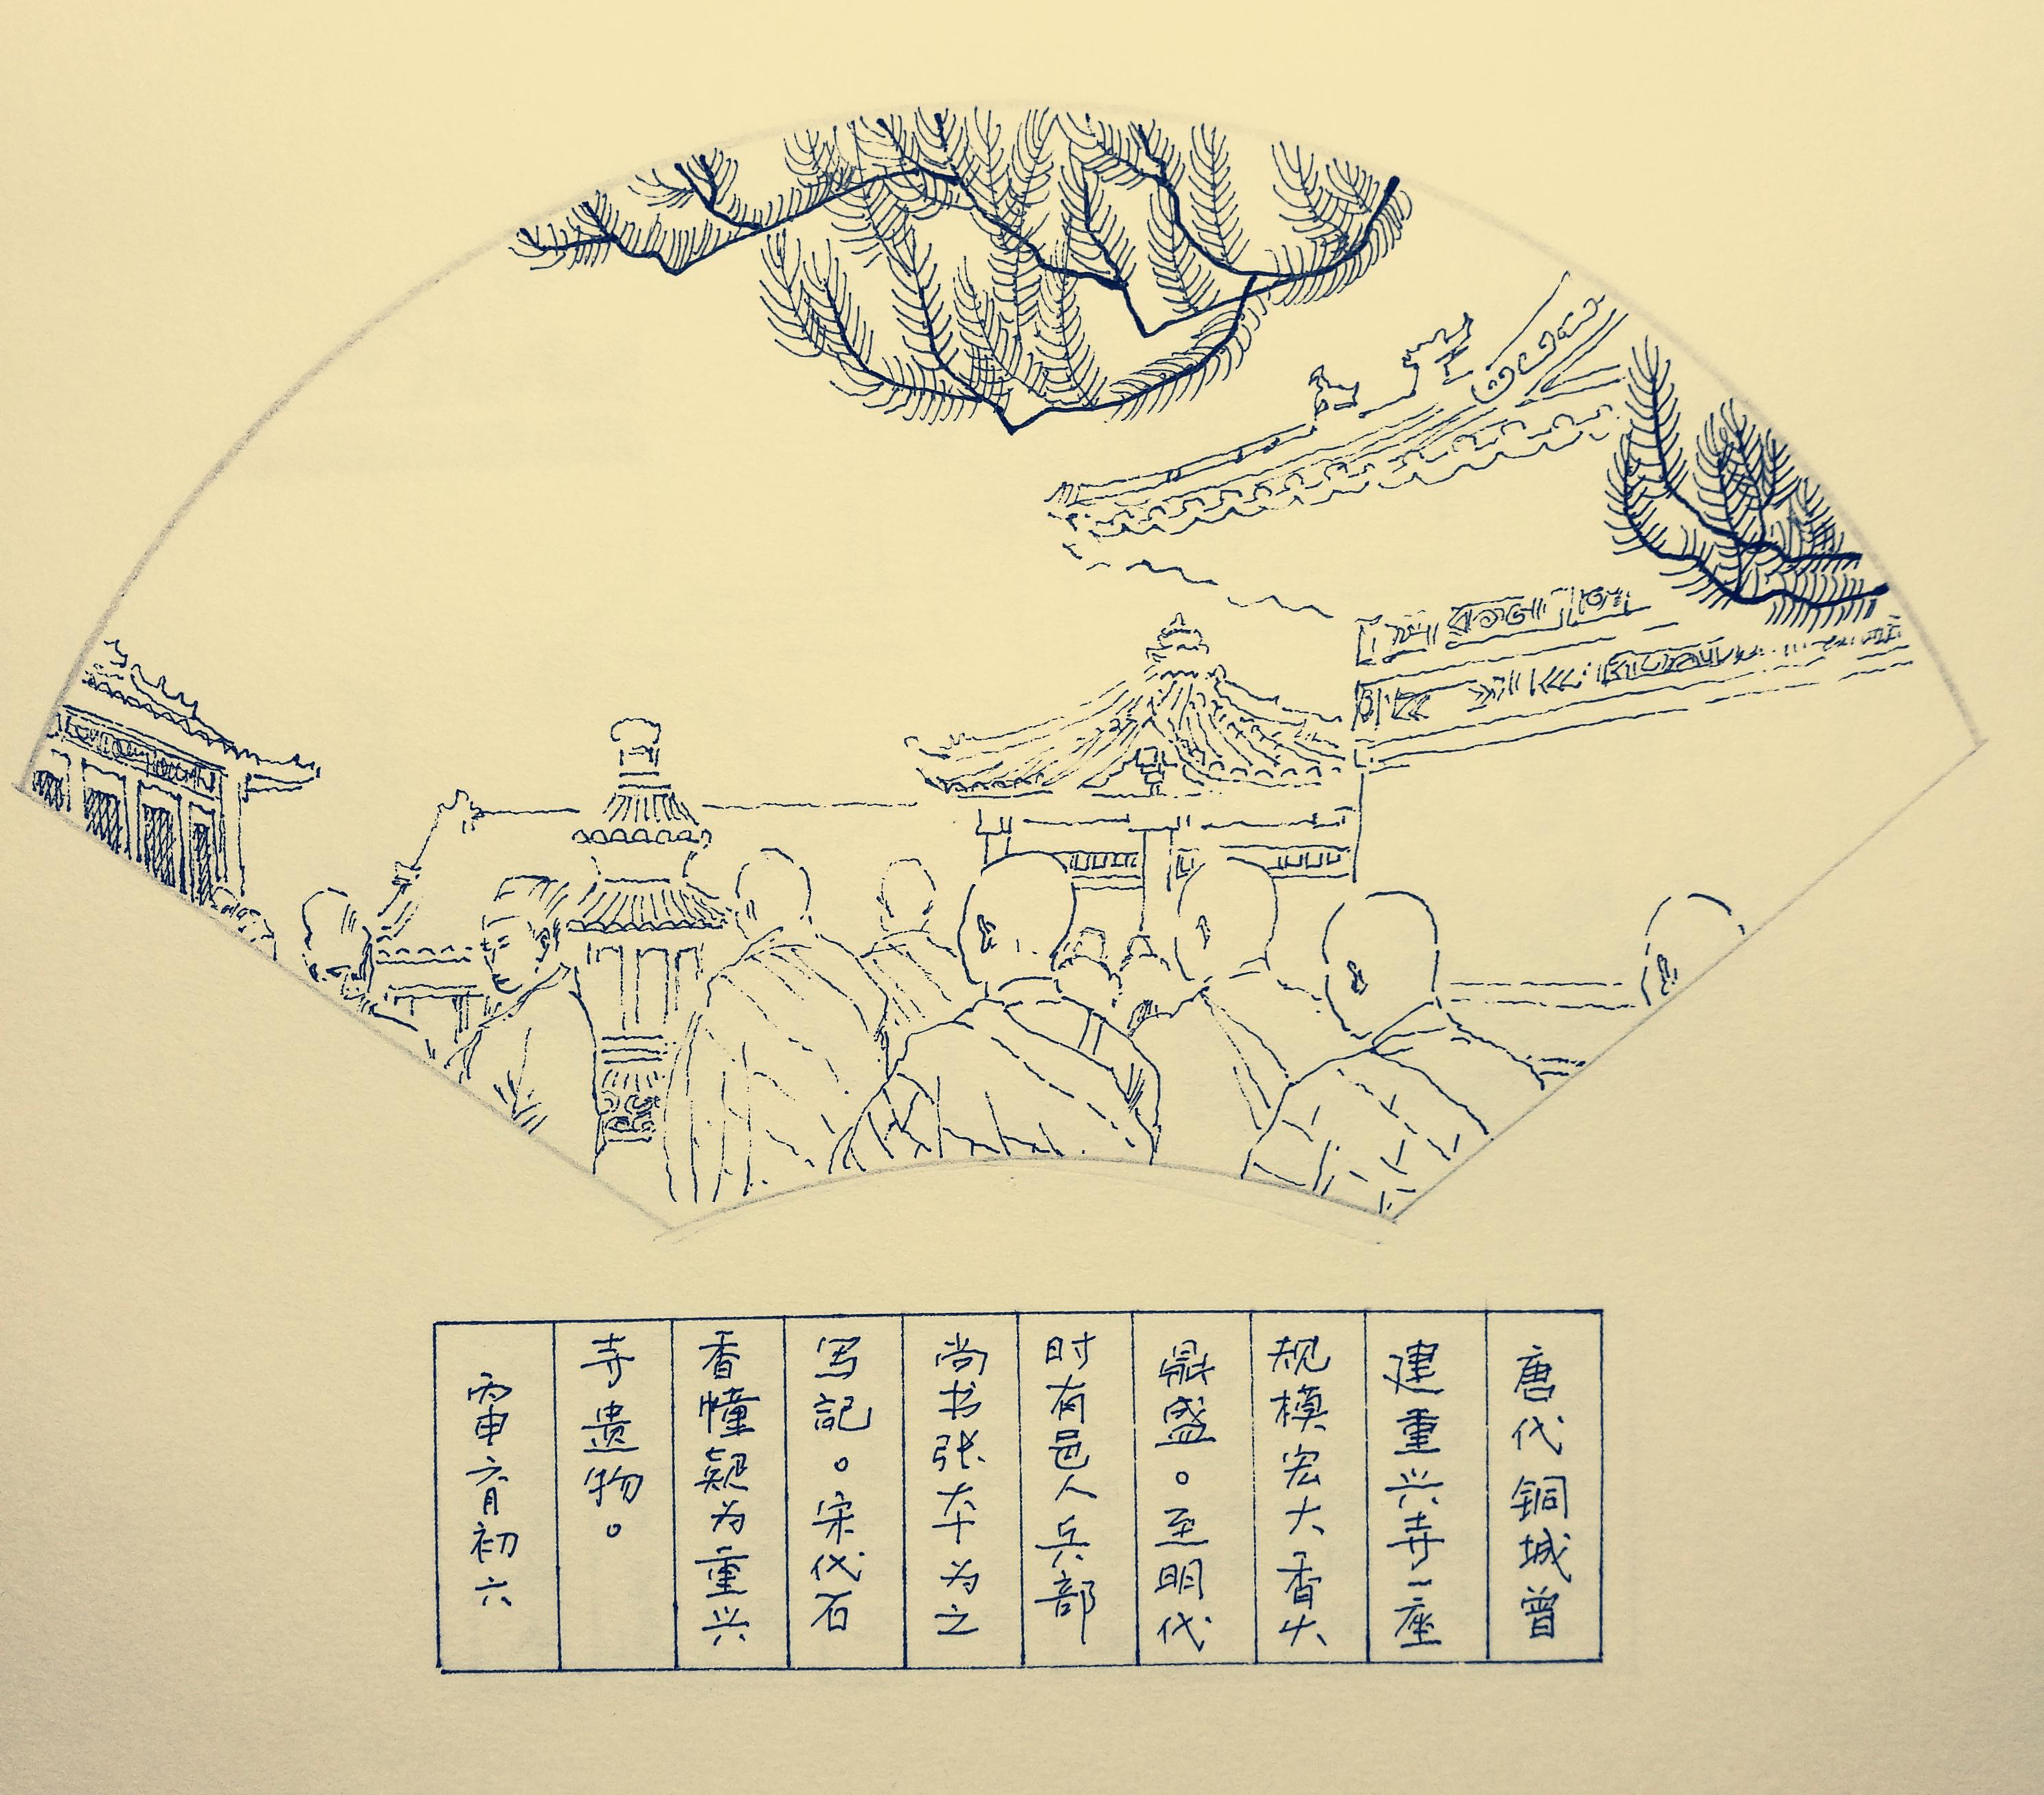 唐代铜城曾
建重兴寺一座
规模宏大香火
鼎盛。至明代
时有邑人兵部
尚书张本为之
写記。宋代石
香幢疑为重兴
寺遗物。
丙申六月初六